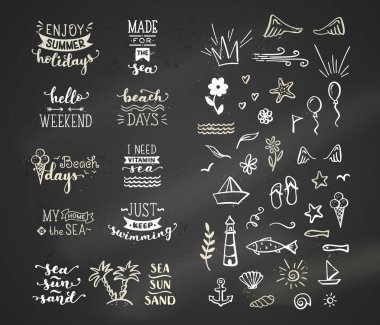 ENJOY
SUMMER
holidays
MADE
FOR
THE
sea
hello
WEEKEND
beach
DAYS
Beach
days
I NEED
VITAMIN
sea
MY HOME
IS THE SEA
JUST
KEEP
swimming
sea
sun
sand
SEA
SUN
SAND